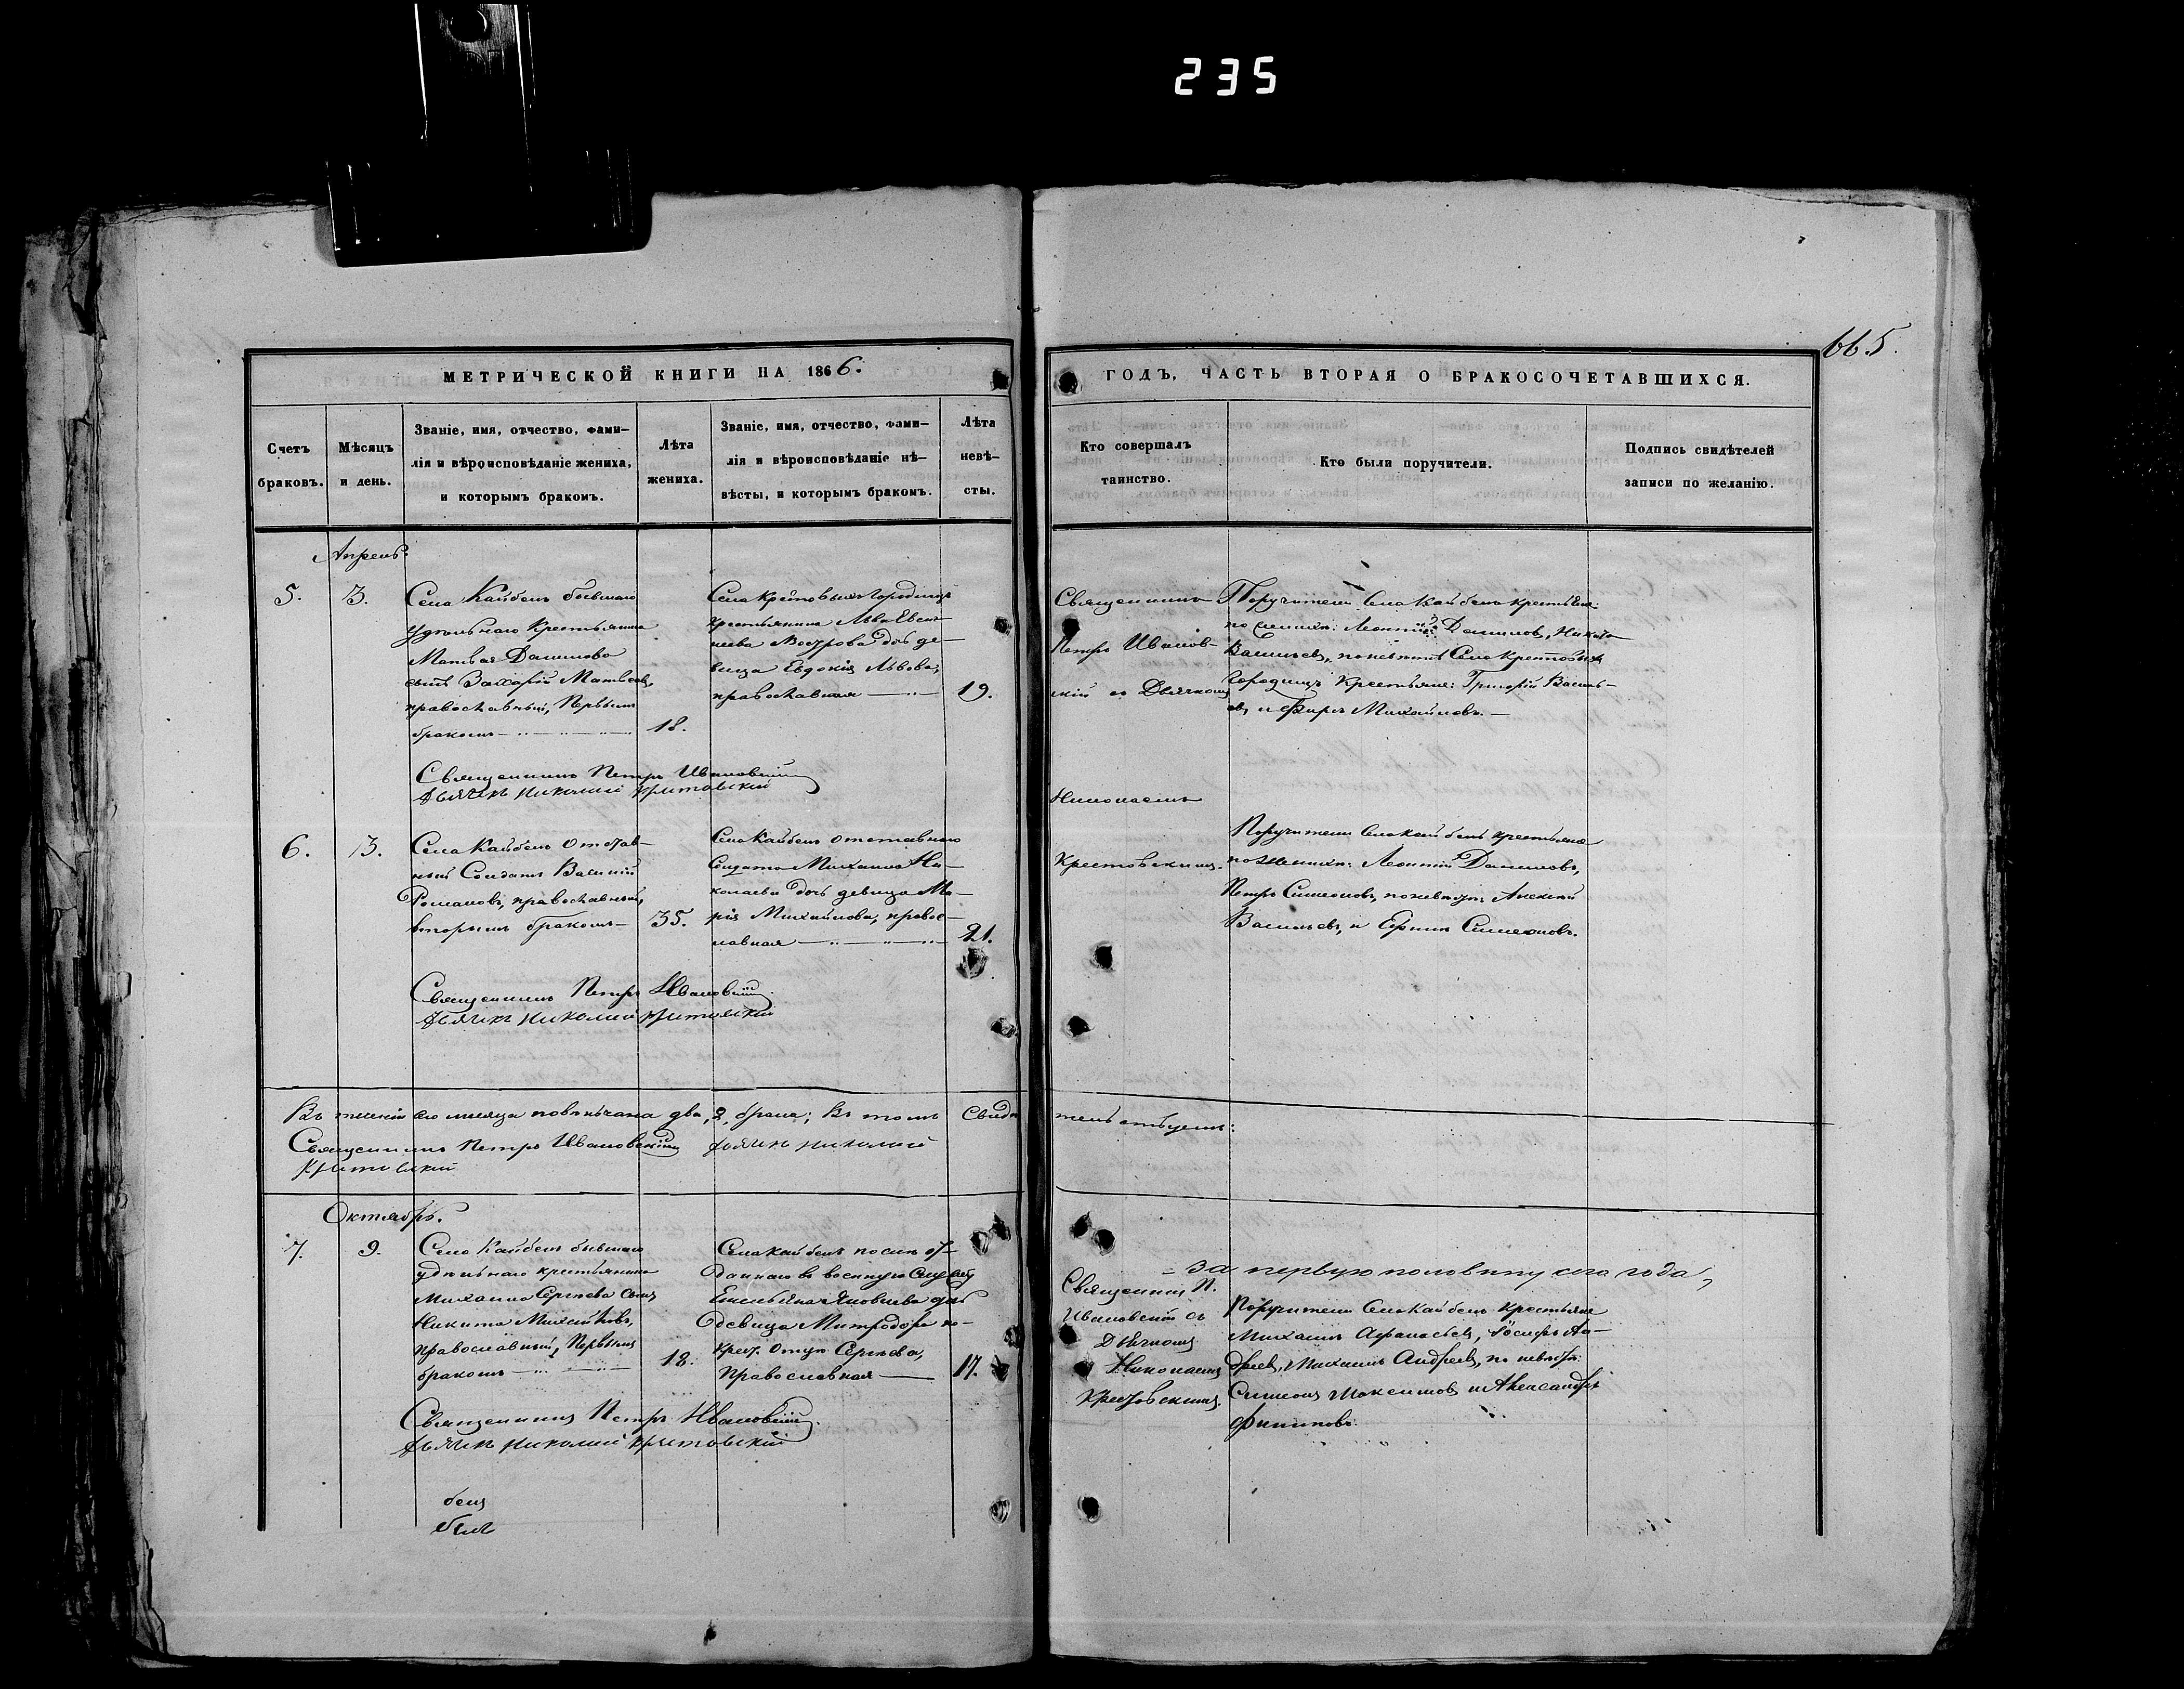 235
665.
МЕТРИЧЕСКОЙ КНИГИ НА 1866.
ГОДЪ, ЧАСТЬ ВТОРАЯ О БРАКОСОЧЕТАВШИХСЯ.
Счетъ
браковъ.
Мѣсяцъ
и день.
Званіе, имя, отчество, фами-
лія и вѣроисповѣданіе жениха,
и которымъ бракомъ.
Лѣта
жениха.
Званіе, имя, отчество, фами-
лія и вѣроисповѣданіе не-
вѣсты, и которымъ бракомъ.
Лѣта
невѣ-
сты.
Кто совершалъ
таинство.
Кто были поручители.
Подпись свидѣтелей
записи по желанію.
Апрель.
5.
13.
Села Кайбелъ бывшаго
удѣльнаго Крестьянина
Матвѣя Данилова
сынъ Захарій Матвѣевъ,
православный, Первымъ
бракомъ
18.
Села Крестовыхъ Городищъ
крестьянина Льва
дочь де-
вица Евдокія Львова,
православная
19.
Священникъ
Петръ Иванов-
скій съ Дьячкомъ
Николаемъ
Крестовскимъ.
Поручители Села Кайбелъ крестьяне:
по женихѣ: Леонтій Даниловъ, Никита
Васильевъ, по невѣстѣ Села Крестовыхъ
Городищъ Крестьяне: Григорій Василь-
евъ, и Фирсъ Михайловъ.
Священникъ Петръ Ивановскій
Дьячекъ Николай Крестовскій
6.
13.
Села Кайбелъ Отстав-
ный Солдатъ Василій
Романовъ, православный,
вторымъ бракомъ
35.
Села Кайбелъ отставнаго
Солдата Михаила Ни-
колаева дочь девица Ма-
рія Михайлова, правос-
лавная
21.
Поручители Села Кайбелъ крестьяне
по женихѣ: Леонтій Даниловъ,
Петръ Симеоновъ, по невѣстѣ: Алексѣй
Васильевъ, и Ермилъ Симеоновъ.
Священникъ Петръ Ивановскій
Дьячекъ Николай Крестовскій
Въ теченіи сего месяца повѣнчана два, 2, брака; Въ томъ Свидѣтельствуемъ:
Священникъ Петръ Ивановскій Дьячекъ Николай
Крестовскій
Октябрь.
7.
9.
Села Кайбелъ бывшаго
удѣльнаго крестьянина
Михаила Сергѣева сынъ
Никита Михайловъ,
православный, Первымъ
бракомъ
18.
Села Кайбелъ послѣ от-
даннаго въ военную Службу
Емельяна Яковлева дочь
девица Митродора по
крест. Отцу Сергѣева,
Православная
17.
за первую половину сего года,
Священникъ П.
Ивановскій съ
Дьячкомъ
Николаемъ
Крестовскимъ.
Поручители Села Кайбелъ Крестьяне
Михаилъ Афанасьевъ, Іосифъ Ан-
дреевъ, Михаилъ Андреевъ, по невѣстѣ:
Симеонъ Максимовъ и Александръ
Филиповъ.
Священникъ Петръ Ивановскій
Дьячекъ Николай Крестовскій